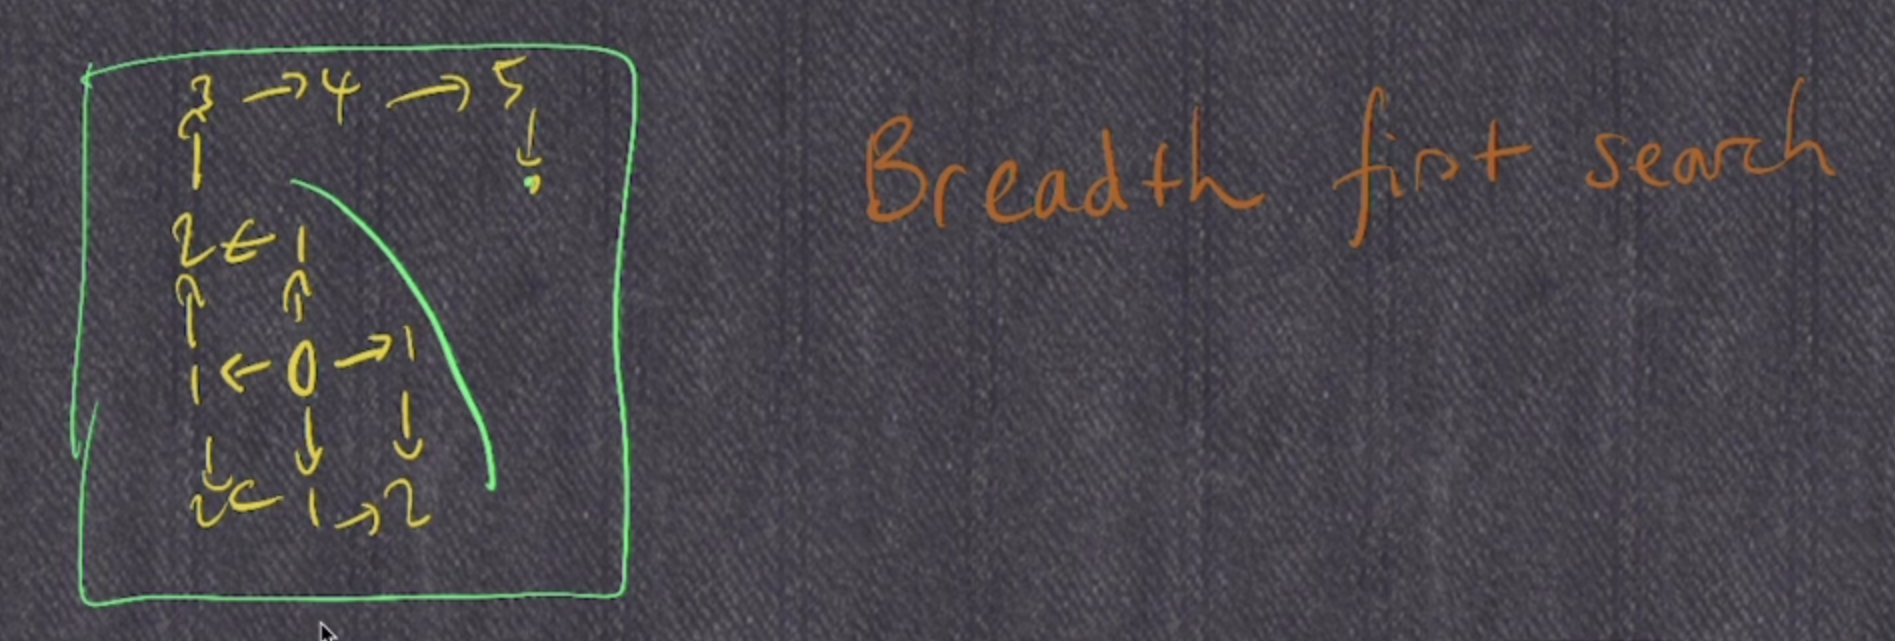 3 → 4 → 5
2 ← 1
1 ← 0 → 1
2 ← 1 → 2
Breadth first search